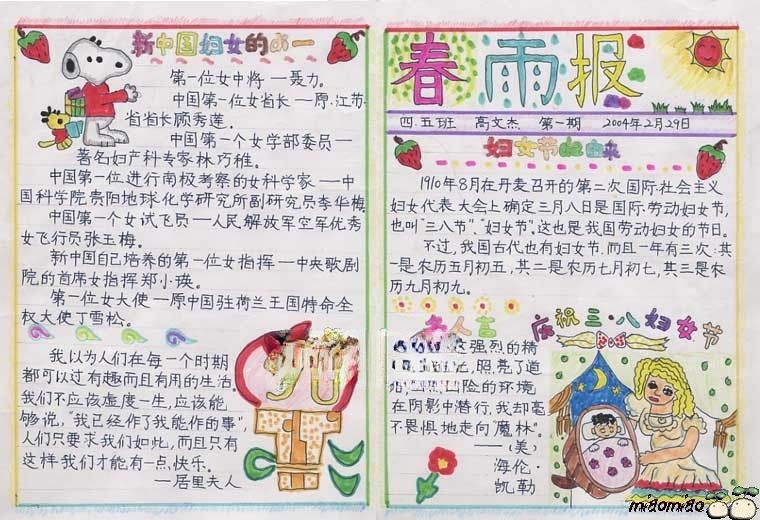 新中国妇女的第一
第一位女中将—聂力。
中国第一位女省长—原·江苏
省省长顾秀莲。
中国第一个女学部委员—
著名妇产科专家林巧稚。
中国第一位进行南极考察的女科学家—中
国科学院贵阳地球化学研究所副研究员李华梅
中国第一个女试飞员—人民解放军空军优秀
女飞行员张玉梅。
新中国自己培养的第一位女指挥—中央歌剧
院的首席女指挥郑小瑛。
第一位女大使—原中国驻荷兰王国特命全
权大使丁雪松。
我以为人们在每一个时期
都可以过有趣而且有用的生活。
我们不应该虚度一生,应该能
够说,"我已经作了我能作的事",
人们只要求我们如此,而且只有
这样我们才能有一点快乐。
—居里夫人
春雨报
四.五班 高文杰 第一期 2004年2月29日
妇女节的由来
1910年8月在丹麦召开的第二次国际社会主义
妇女代表大会上确定三月八日是国际劳动妇女节,
也叫"三八节"、"妇女节",这也是我国劳动妇女的节日。
不过,我国古代也有妇女节.而且一年有三次:其
一是农历五月初五,其二是农历七月初七,其三是农
历九月初九。
名人言
这强烈的精
照亮了道
险的环境
在阴影中潜行,我却毫
不畏惧地走向"魔林"。
——(美)
海伦·
凯勒
庆祝三·八妇女节
miaomiao